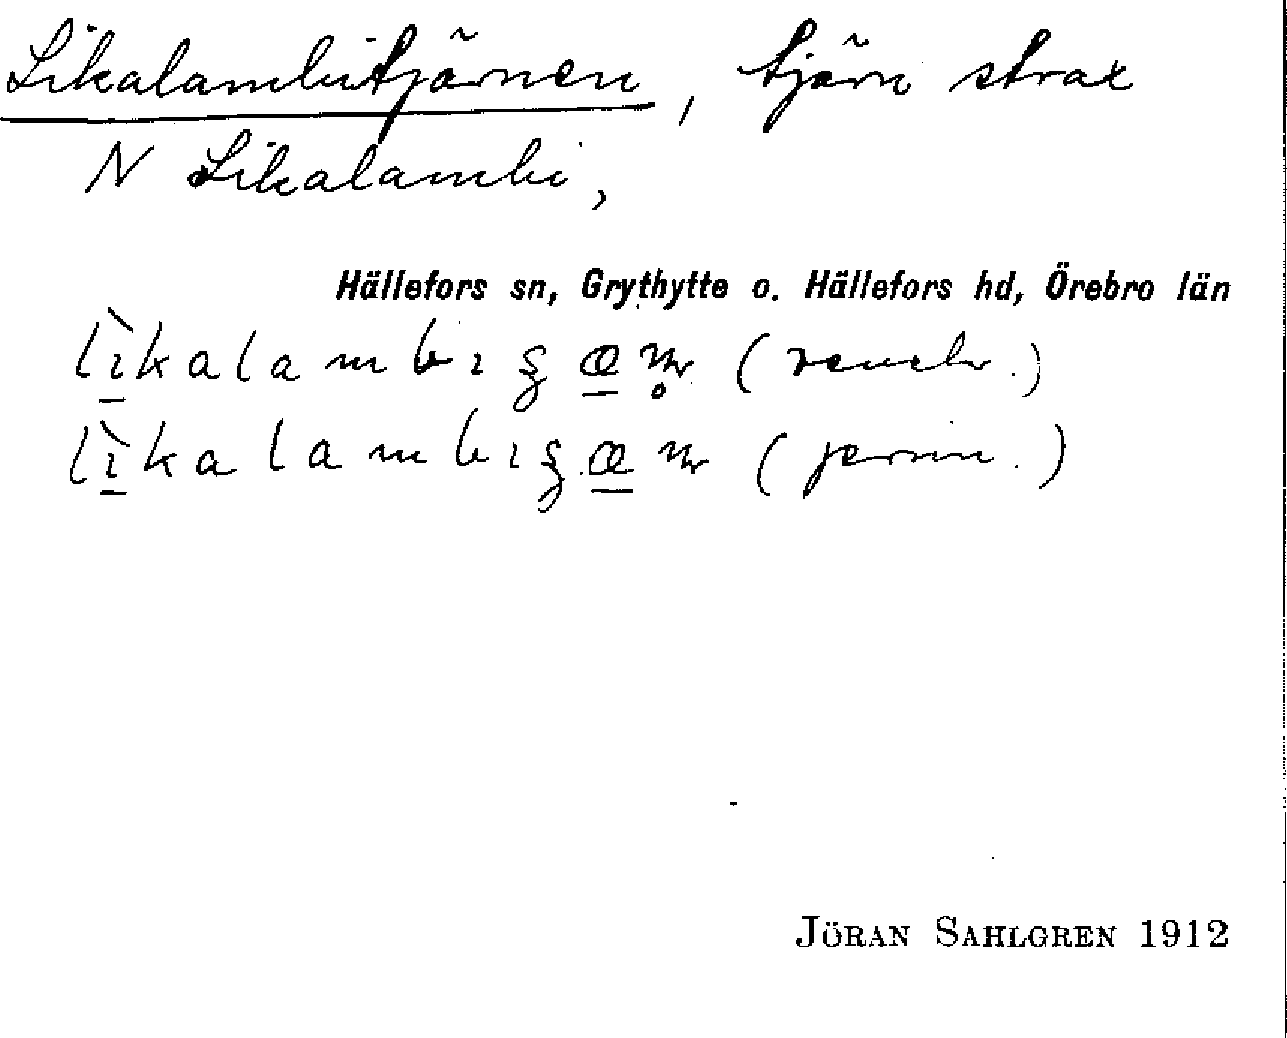 Likalambitjärnen, tjärn strax
N Likalambi,
Hällefors sn, Grythytte o. Hällefors hd, Örebro län
lìkalambi
lìkalambi
JÖRAN SAHLGREN 1912